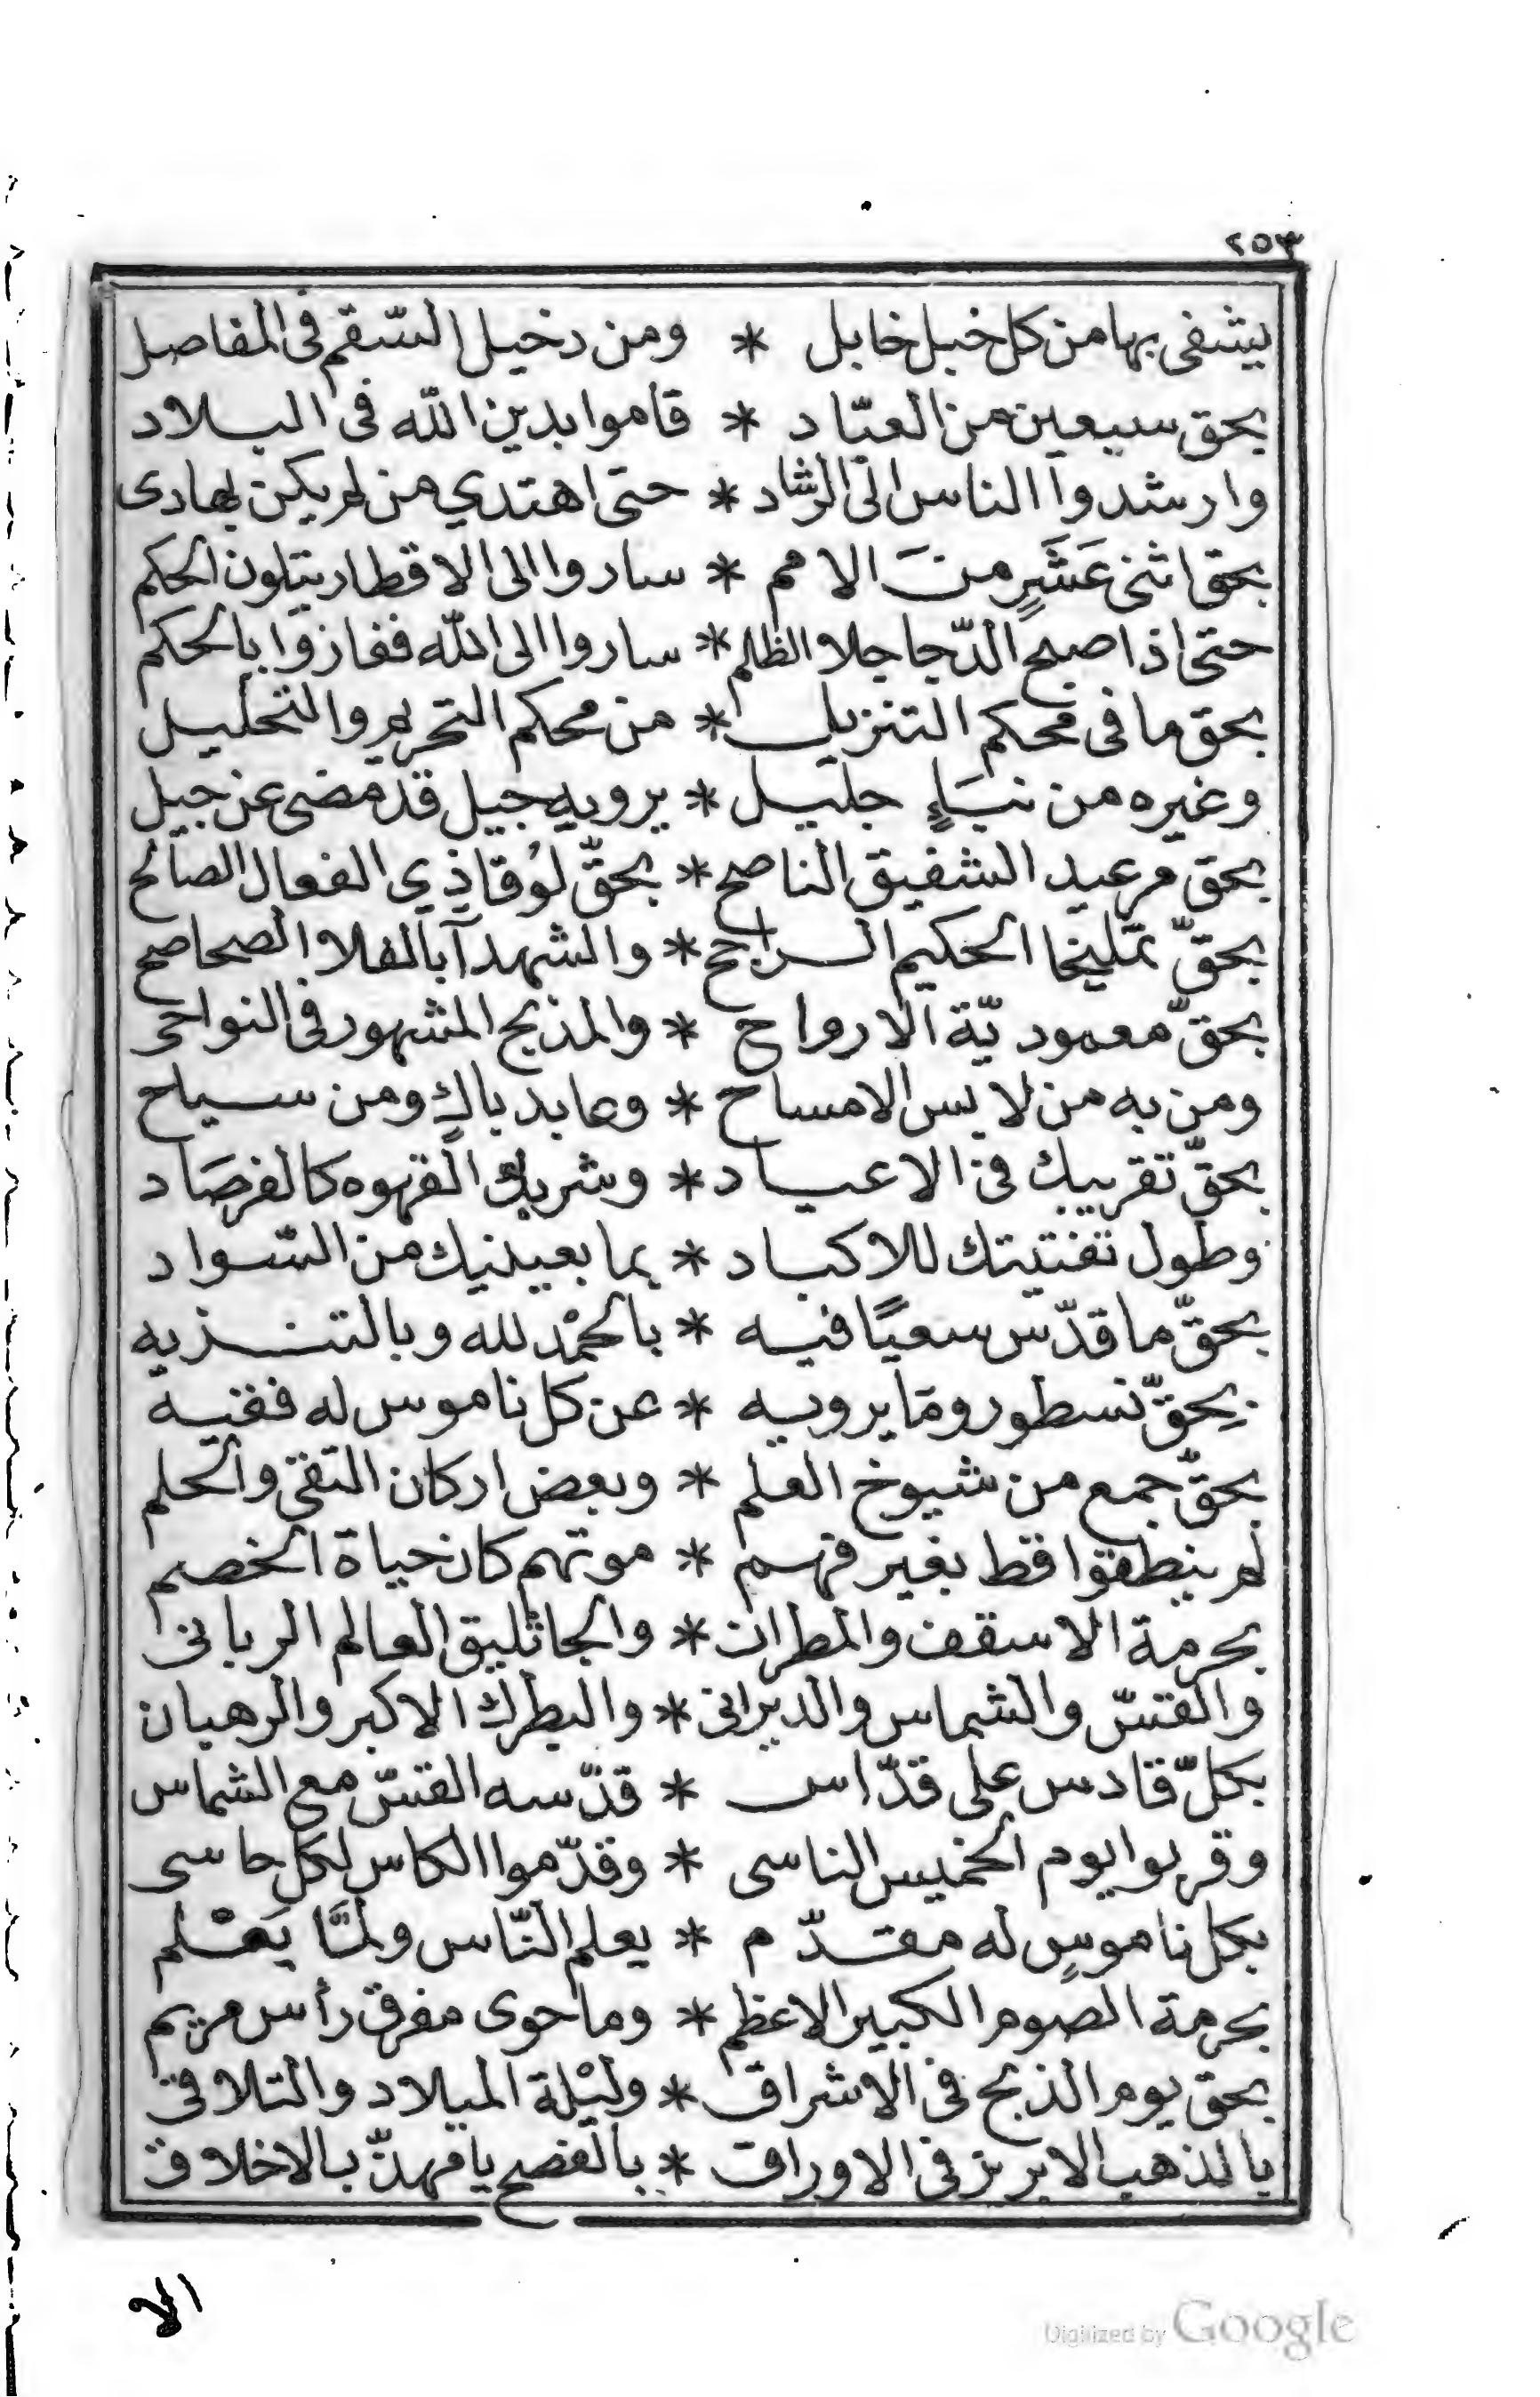 ٢٥٣
يشفى بها من كل خبل خابل * ومن دخيل السّقم فى المفاصل
بحق سبعين من العبّاد * قاموا بدين الله فى البلاد
وارشدوا الناس الى الرشاد * حتى اهتدي من لم يكن بهادى
بحق اثنى عَشَرٍ منَ الامم * ساروا الى الاقطار يتلون الحكم
حتى اذا صبح الدّجا جلا الظلم * ساروا الى الله ففازوا بالحكم
بحق ما فى محكم التنزيل * من محكم التحريم والتحليل
وغيره من نبَاءٍ جليل * يرويه جيل قد مضى عن جيل
بحق مرعيد الشفيق الناصح * بحقّ لوُقا ذي الفعال الصالح
بحقّ تمليخا الحكيم الراجح * والشهدآ بالفلا الصحاصح
بحقّ معموديّة الارواح * والمذبح المشهور فى النواحى
ومن به من لابس الامساح * وعابد باكٍ ومن سياح
بحقّ تقريبك فى الاعياد * وشربك القهوه كالفرصَاد
وطول تفتيتك للاكباد * بما بعينيك من السّواد
بحقّ ما قدّس سعيًا فيه * بالحمْد لله وبالتنزيه
بحقّ نسطور وما يرويه * عن كل ناموس له فقيه
بحقّ جمع من شيوخ العلم * وبعض اركان التقى والحلم
لم ينطقوا قط بغير فهم * موتهم كان حياة الخصم
بحرمة الاسقف والمطران * والجاثليق العالم الربانى
والقسّ والشماس والديرانى * والبطرك الاكبر والرهبان
بكلّ قادس على قدّاس * قدّسه القسّ مع الشماس
وقربوا يوم الخميس الناسى * وقدّموا الكاس لكل حاسى
بكل ناموسٍ له مقدّم * يعلم النّاس ولمَّا يَعْلم
بحرمة الصوم الكبير الاعظم * وما حوى مفرق رأس مريم
بحق يوم الذبح فى الاشراق * وليْلة الميلاد والتلاقى
بالذهب الابريز فى الاوراق * بالفصح يا مهذّب الاخلاق
الا
Digitized by Google